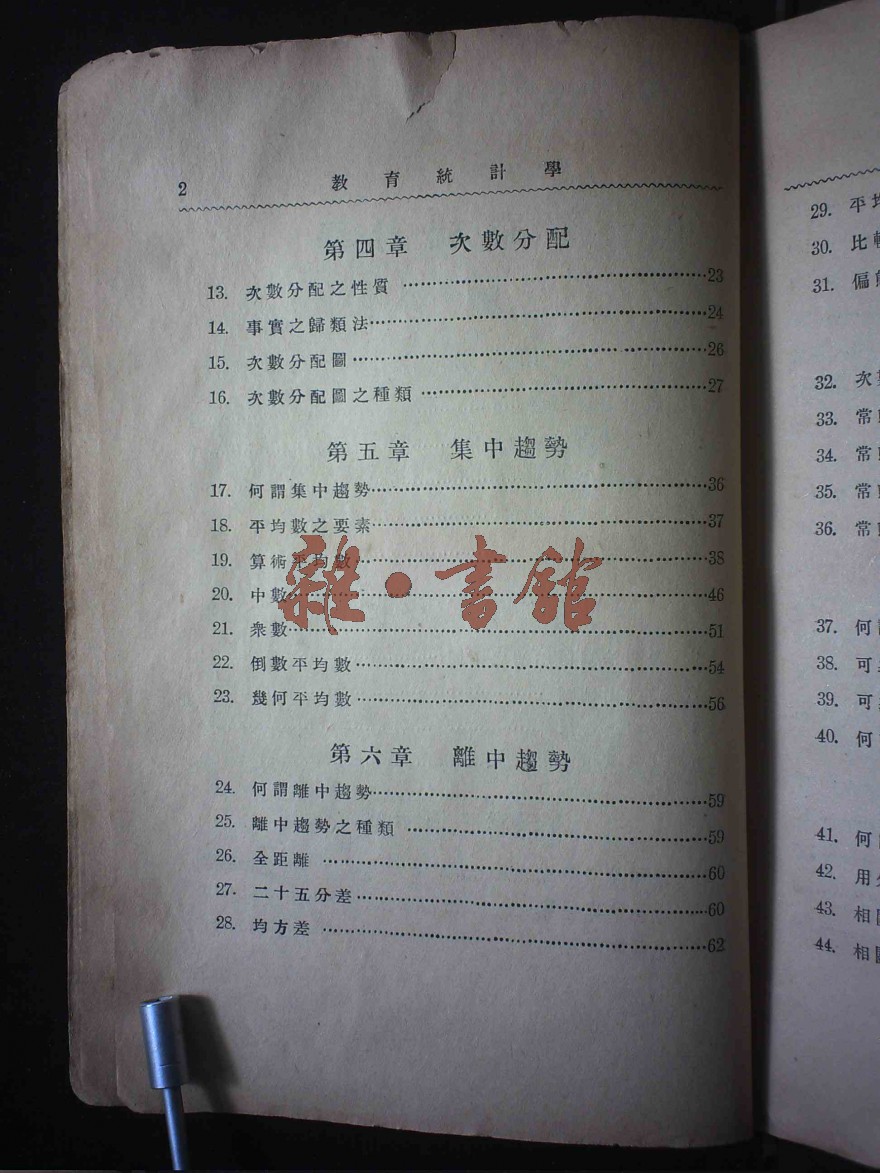 2 教育統計學
第四章 次數分配
13. 次數分配之性質 23
14. 事實之歸類法 24
15. 次數分配圖 26
16. 次數分配圖之種類 27
第五章 集中趨勢
17. 何謂集中趨勢 36
18. 平均數之要素 37
19. 算術平均數 38
20. 中數 46
21. 衆數 51
22. 倒數平均數 54
23. 幾何平均數 56
第六章 離中趨勢
24. 何謂離中趨勢 59
25. 離中趨勢之種類 59
26. 全距離 60
27. 二十五分差 60
28. 均方差 62
雜・書館
29. 平
30. 比
31. 偏
32. 次
33. 常
34. 常
35. 常
36. 常
37. 何
38. 可
39. 可
40. 何
41. 何
42. 用
43. 相
44. 相